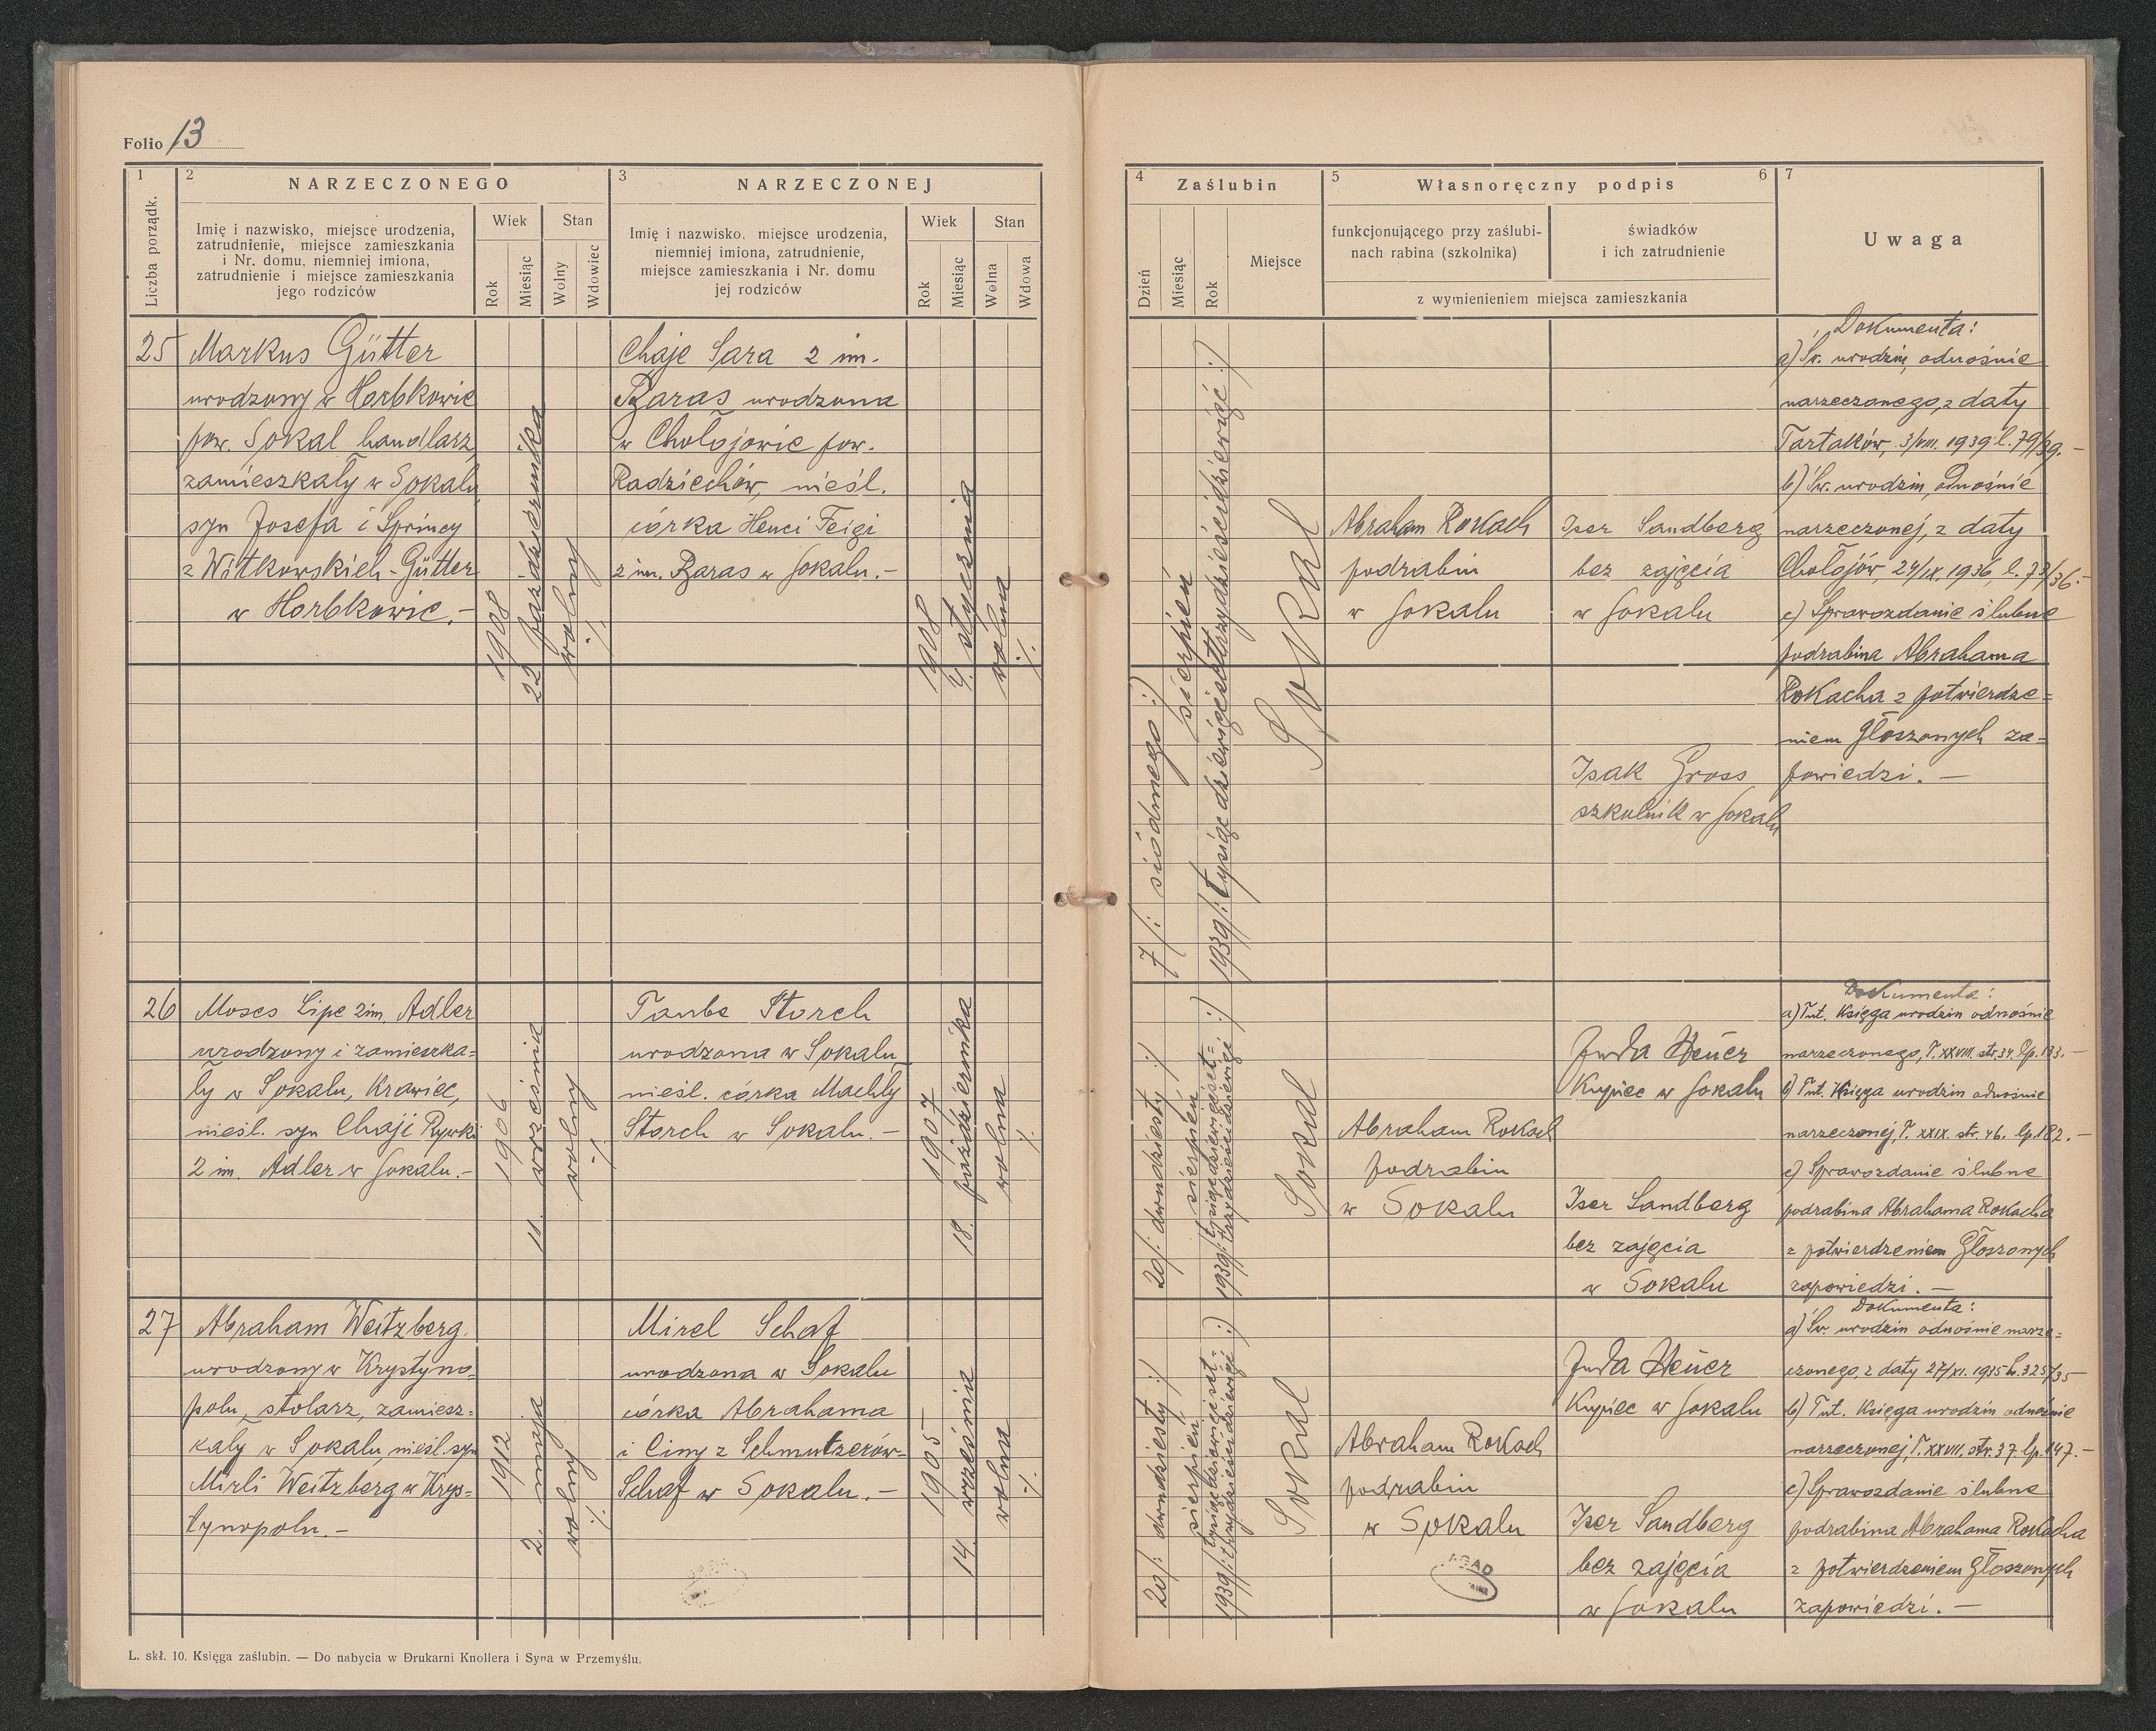 Folio 13
1
2
NARZECZONEGO
3
NARZECZONEJ
Liczba porządk.
Imię i nazwisko, miejsce urodzenia,
zatrudnienie, miejsce zamieszkania
i Nr. domu, niemniej imiona,
zatrudnienie i miejsce zamieszkania
jego rodziców
Wiek
Stan
Rok
Miesiąc
Wolny
Wdowiec
Imię i nazwisko, miejsce urodzenia,
niemniej imiona, zatrudnienie,
miejsce zamieszkania i Nr. domu
jej rodziców
Wiek
Stan
Rok
Miesiąc
Wolna
Wdowa
25
Markus Gütter
urodzony w Horbkowie
pow. Sokal handlarz
zamieszkały w Sokalu
syn Josefa i Sprincy
z Witkowskich-Gütter
w Horbkowie.-
1908
22 października
wolny
./.
Chaje Sara 2 im.
Baras urodzona
w Chołojowie pow.
Radziechów, nieśl.
córka Henci Feigi
2 im. Baras w Sokalu.-
1908
4. stycznia
wolna
./.
26
Moses Lipe 2im. Adler
urodzony i zamieszka=
ły w Sokalu, krawiec,
nieśl. syn Chaji Rywki
2 im. Adler w Sokalu.-
1906
11. września
wolny
./.
Taube Storch
urodzona w Sokalu
nieśl. córka Machly
Storch w Sokalu.-
1907
18. października
wolna
./.
27
Abraham Weitzberg
urodzony w Krystyno=
polu, stolarz, zamiesz=
kały w Sokalu, nieśl. syn
Mirli Weitzberg w Krys=
tynopolu.-
1912
2. maja
wolny
./.
Mirel Schaf
urodzona w Sokalu
córka Abrahama
i Ciny z Schmutzerów-
Schaf w Sokalu.-
1905
14. września
wolna
./.
L. skł. 10. Księga zaślubin. — Do nabycia w Drukarni Knollera i Syna w Przemyślu.
4
Zaślubin
5
Własnoręczny podpis
6
7
Dzień
Miesiąc
Rok
Miejsce
funkcjonującego przy zaślubi-
nach rabina (szkolnika)
świadków
i ich zatrudnienie
z wymienieniem miejsca zamieszkania
Uwaga
7/: siódmego :/
sierpień
1939/: tysiąc dziewięćset trzydzieści dziewięć :/
Sokal
Abraham Rokach
podrabin
w Sokalu
Iser Sandberg
bez zajęcia
w Sokalu
Isak Gross
szkolnik w Sokalu
Dokumenta:
a) Św. urodzin, odnośnie
narzeczonego, z daty
Tartaków, 3/VIII. 1939 l. 79/39.-
b) Św. urodzin, odnośnie
narzeczonej, z daty
Chołojów, 24/IX. 1936, l. 73/36.-
c) Sprawozdanie ślubne
podrabina Abrahama
Rokacha z potwierdze=
niem głoszonych za=
powiedzi.—
20/: dwudziesty :/
sierpień
1939/: tysiąc dziewięćset=
trzydzieści dziewięć :/
Sokal
Abraham Rokach
podrabin
w Sokalu
Juda Heuer
Kupiec w Sokalu
Iser Sandberg
bez zajęcia
w Sokalu
Dokumenta:
a) Tut. Księga urodzin odnośnie
narzeczonego, T. XXVIII. str. 34. lp. 133.-
b) Tut. Księga urodzin odnośnie
narzeczonej, T. XXIX. str. 46. lp. 182.-
c) Sprawozdanie ślubne
podrabina Abrahama Rokacha
z potwierdzeniem głoszonych
zapowiedzi.—
20/: dwudziesty :/
sierpień
1939/: tysiąc dziewięćset=
trzydzieści dziewięć :/
Sokal
Abraham Rokach
podrabin
w Sokalu
Juda Heuer
Kupiec w Sokalu
Iser Sandberg
bez zajęcia
w Sokalu
Dokumenta:
a) Św. urodzin odnośnie narze=
czonego, z daty 27/XI. 1935 L. 325/35
b) Tut. Księga urodzin odnośnie
narzeczonej, T. XXVII. str. 37 lp. 147.-
c) Sprawozdanie ślubne
podrabina Abrahama Rokacha
z potwierdzeniem głoszonych
zapowiedzi.—
AGAD